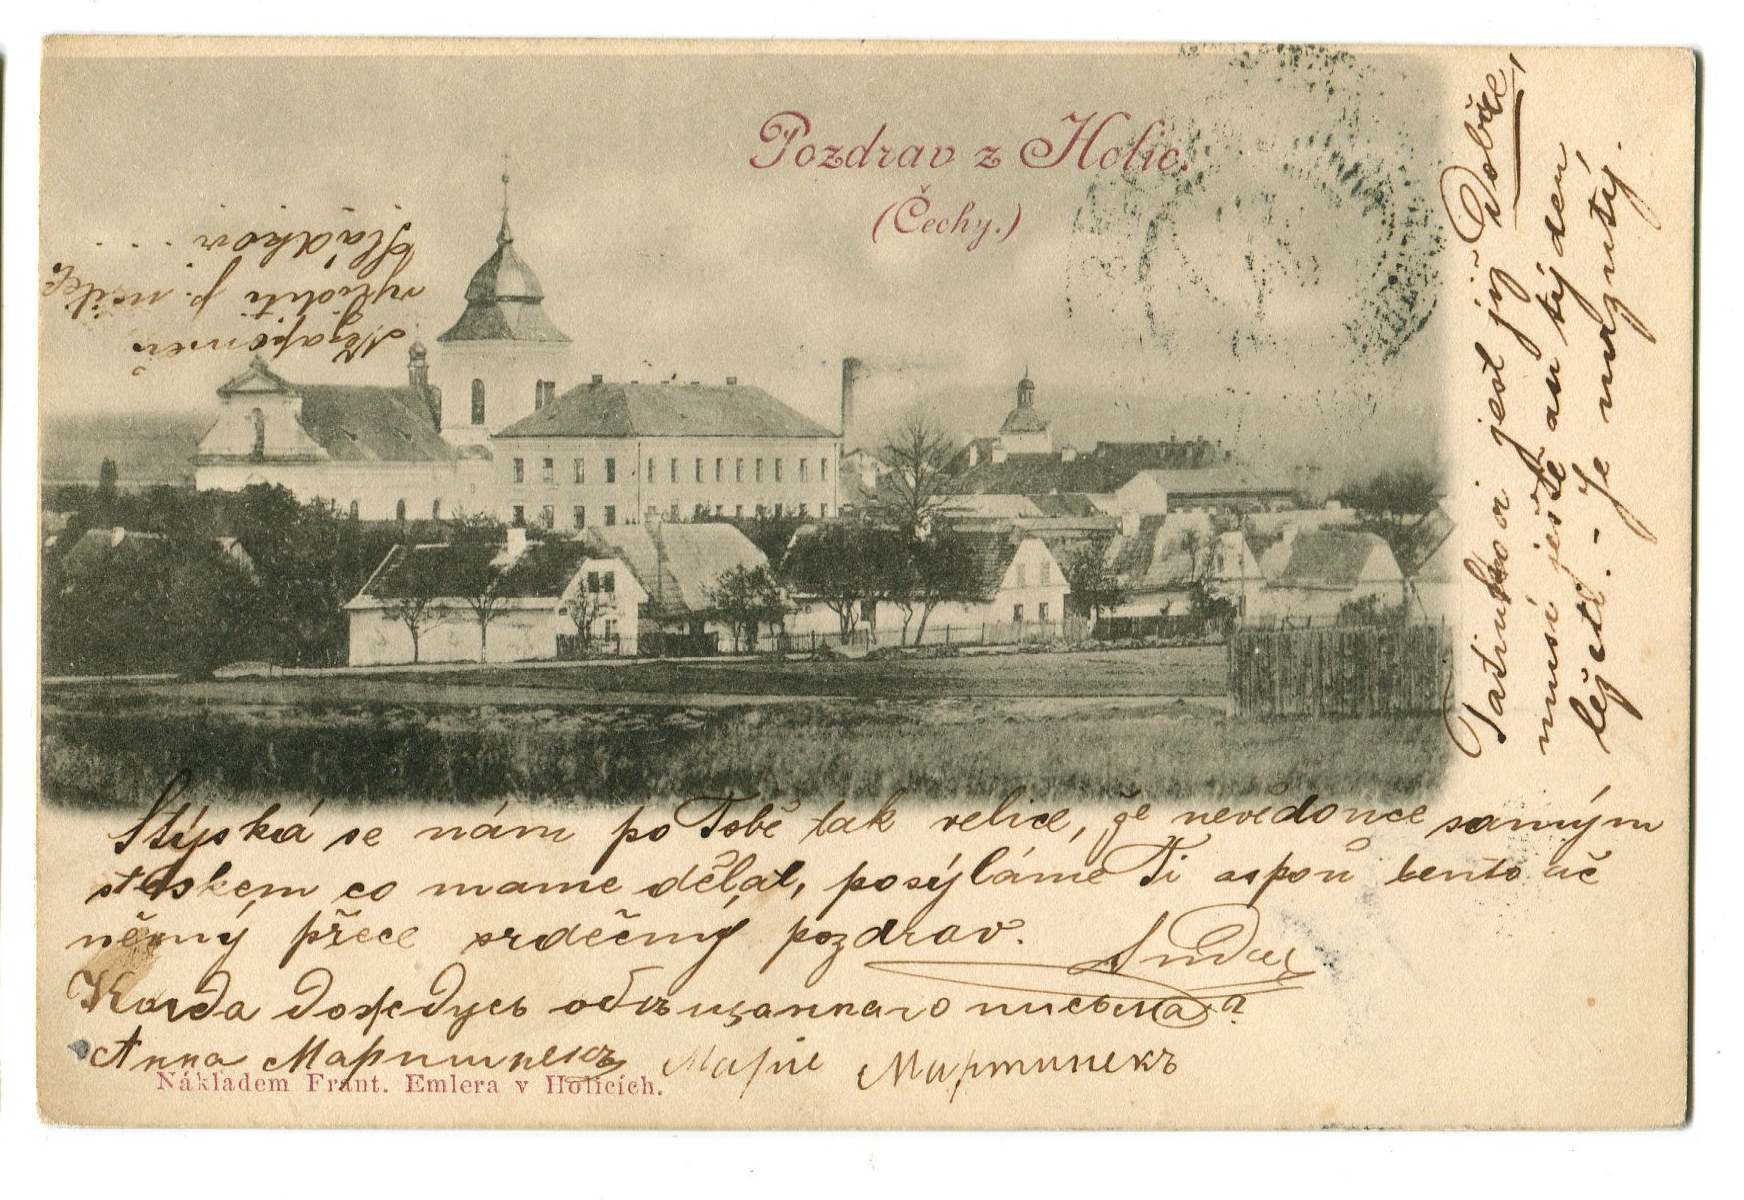 Pozdrav z Holic.
(Čechy.)
Nezapomeň
vyřiditi p. učitel
Sládkovi ....
Tatínkovi jest již Dobře,
musí ještě an týden
ležeti. - Je mrzutý.
Stýská se nám po Tobě tak velice, že nevědouce samým
steskem co máme dělat, posýláme Ti aspoň tento uč
něný přece srdečný pozdrav.
Когда дождусь обѣщаннаго письма?
Анна Мартинекъ Маріе Мартинекъ
Nákladem Frant. Emlera v Holicích.